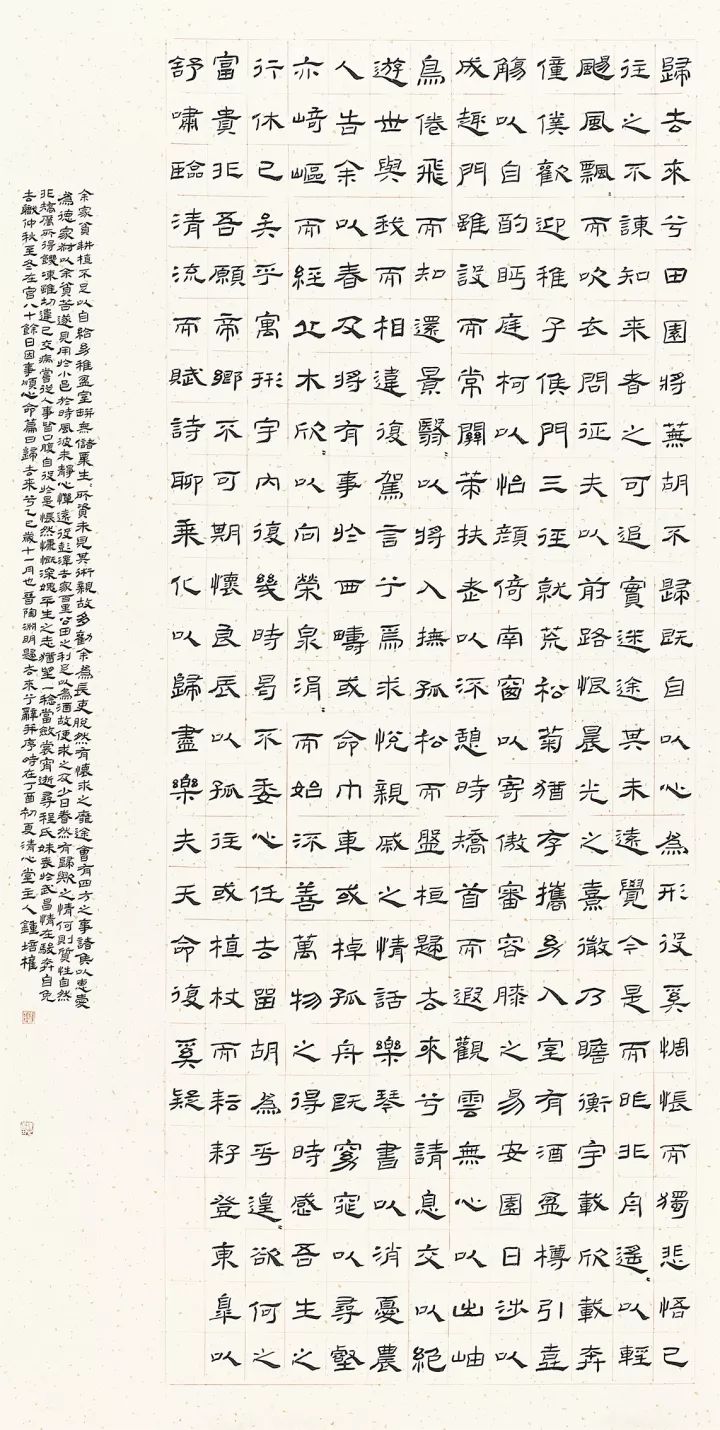 歸去來兮田園將蕪胡不歸既自以心為形役奚惆悵而獨悲悟已
往之不諫知來者之可追實迷途其未遠覺今是而昨非舟遙〻以輕
颺風飄〻而吹衣問征夫以前路恨晨光之熹微乃瞻衡宇載欣載奔
僮僕歡迎稚子候門三徑就荒松菊猶存攜幼入室有酒盈樽引壺
觴以自酌眄庭柯以怡顏倚南窗以寄傲審容膝之易安園日涉以
成趣門雖設而常關策扶老以流憩時矯首而遐觀雲無心以出岫
鳥倦飛而知還景翳〻以將入撫孤松而盤桓歸去來兮請息交以絕
遊世與我而相違復駕言兮焉求悅親戚之情話樂琴書以消憂農
人告余以春及將有事於西疇或命巾車或棹孤舟既窈窕以尋壑
亦崎嶇而經丘木欣〻以向榮泉涓〻而始流善萬物之得時感吾生之
行休已矣乎寓形宇內復幾時曷不委心任去留胡為乎遑〻欲何之
富貴非吾願帝鄉不可期懷良辰以孤往或植杖而耘耔登東皋以
舒嘯臨清流而賦詩聊乘化以歸盡樂夫天命復奚疑
余家貧耕植不足以自給幼稚盈室缾無儲粟生〻所資未見其術親故多勸余為長吏脫然有懷求之靡途會有四方之事諸侯以惠愛
為德家叔以余貧苦遂見用於小邑於時風波未靜心憚遠役彭澤去家百里公田之利足以為酒故便求之及少日眷然有歸歟之情何則質性自然
非矯厲所得饑凍雖切違己交病嘗從人事皆口腹自役於是悵然慷慨深媿平生之志猶望一稔當斂裳宵逝尋程氏妹喪於武昌情在駿奔自免
去職仲秋至冬在官八十餘日因事順心命篇曰歸去來兮乙巳歲十一月也晉陶淵明歸去來兮辭并序時在丁酉初夏清心堂主人鍾培權